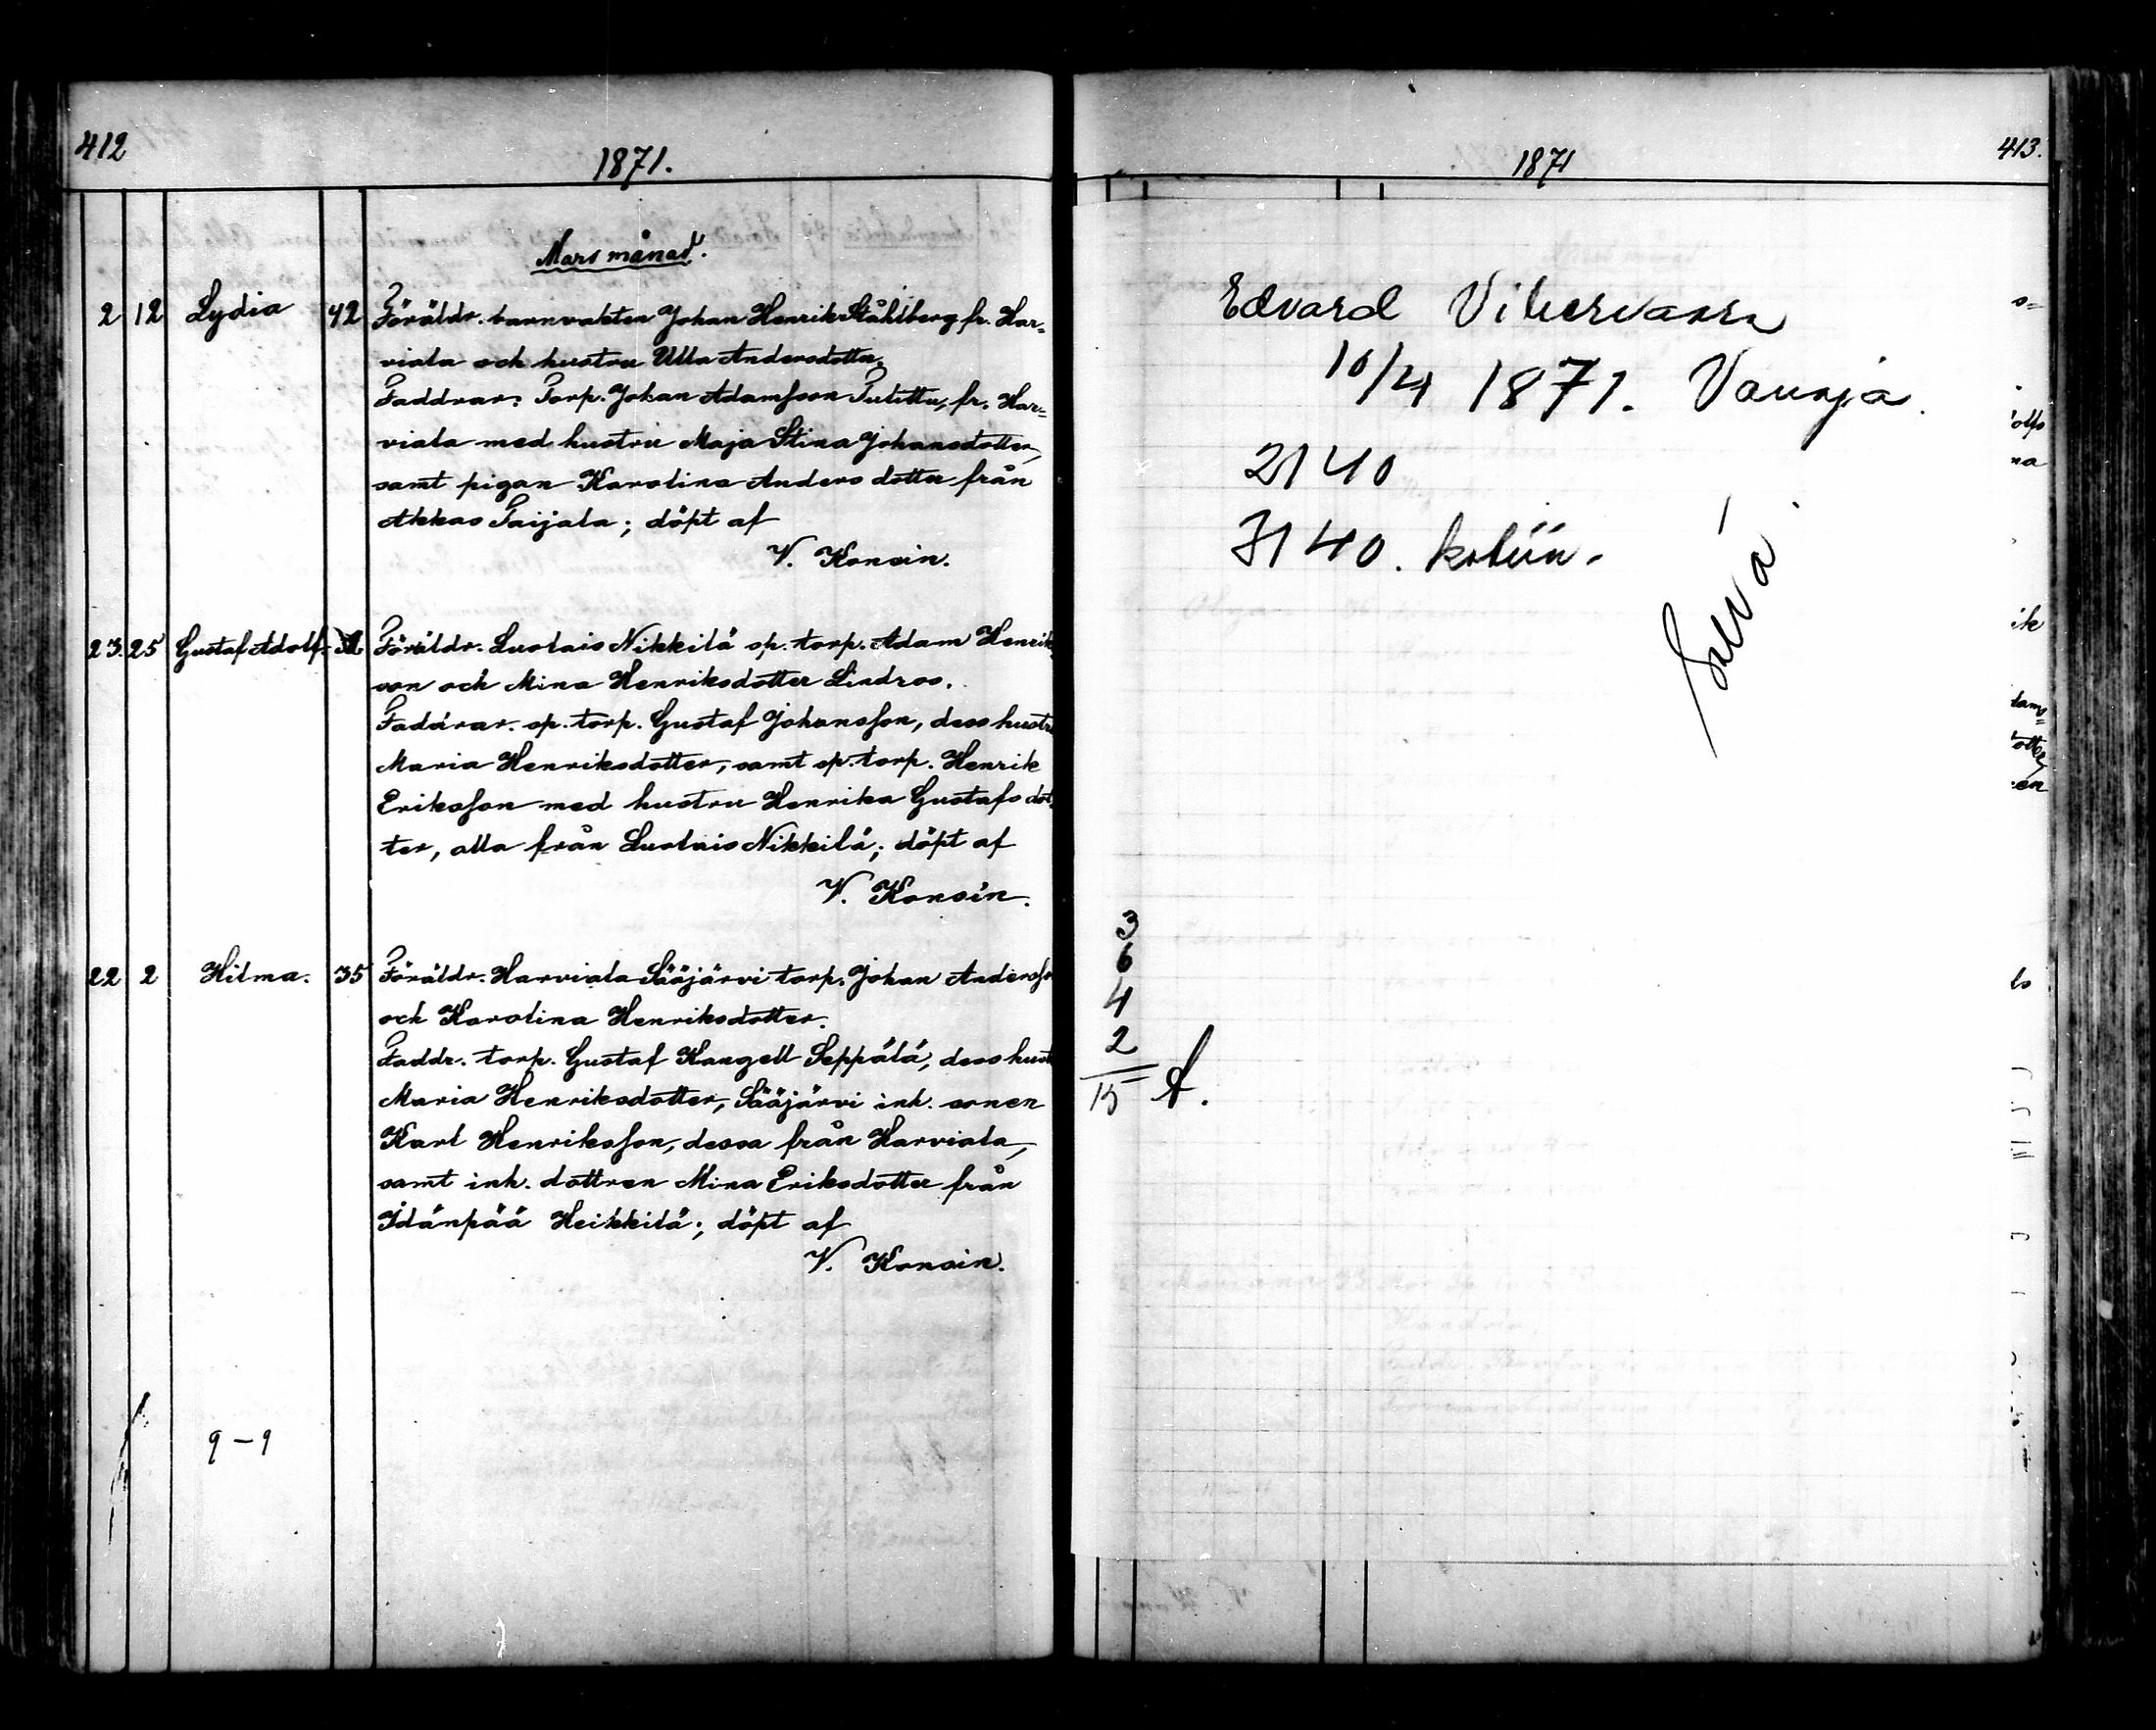 412
1871.
Mars månad.
2 12 Lydia 42 Föräldr. barnvakten Johan Henrik Ståhlberg fr. Har=
viala och hustru Ulla Andersdotter.
Faddrar: Torp. Johan Adamsson fr. Har=
viala med hustru Maja Stina Johansdotter,
samt pigan Karolina Anders dotter från
Akkas Taijala; döpt af
V. Konsin.
23. 25 Gustaf Adolf. Föräldr. Luolais Nikkilä sp. torp. Adam Henrik
son och Mina Henriksdotter Lindros.
Faddrar. sp. torp. Gustaf Johansson, dess hustr
Maria Henriksdotter, samt sp. torp. Henrik
Eriksson med hustru Henrika Gustafs dot
ter, alla från Luolais Nikkilä; döpt af
V. Konsin.
22 2 Hilma. 35 Föräldr. Harviala Sääjärvi torp. Johan Anderss
och Karolina Henriksdotter.
Faddr. torp. Gustaf Kangell Seppälä, dess hust
Maria Henriksdotter, Sääjärvi inh. sonen
Karl Henriksson, dessa från Harviala,
samt inh. dottren Mina Eriksdotter från
Idänpää Heikkilä; döpt af
V. Konsin.
9 – 9
1871
413.
Edvard
10/4 1871. Vanaja.
2140
3140. kotiin.
3
6
4
2
15
s=
na
ik
dams=
otter,
en
ls